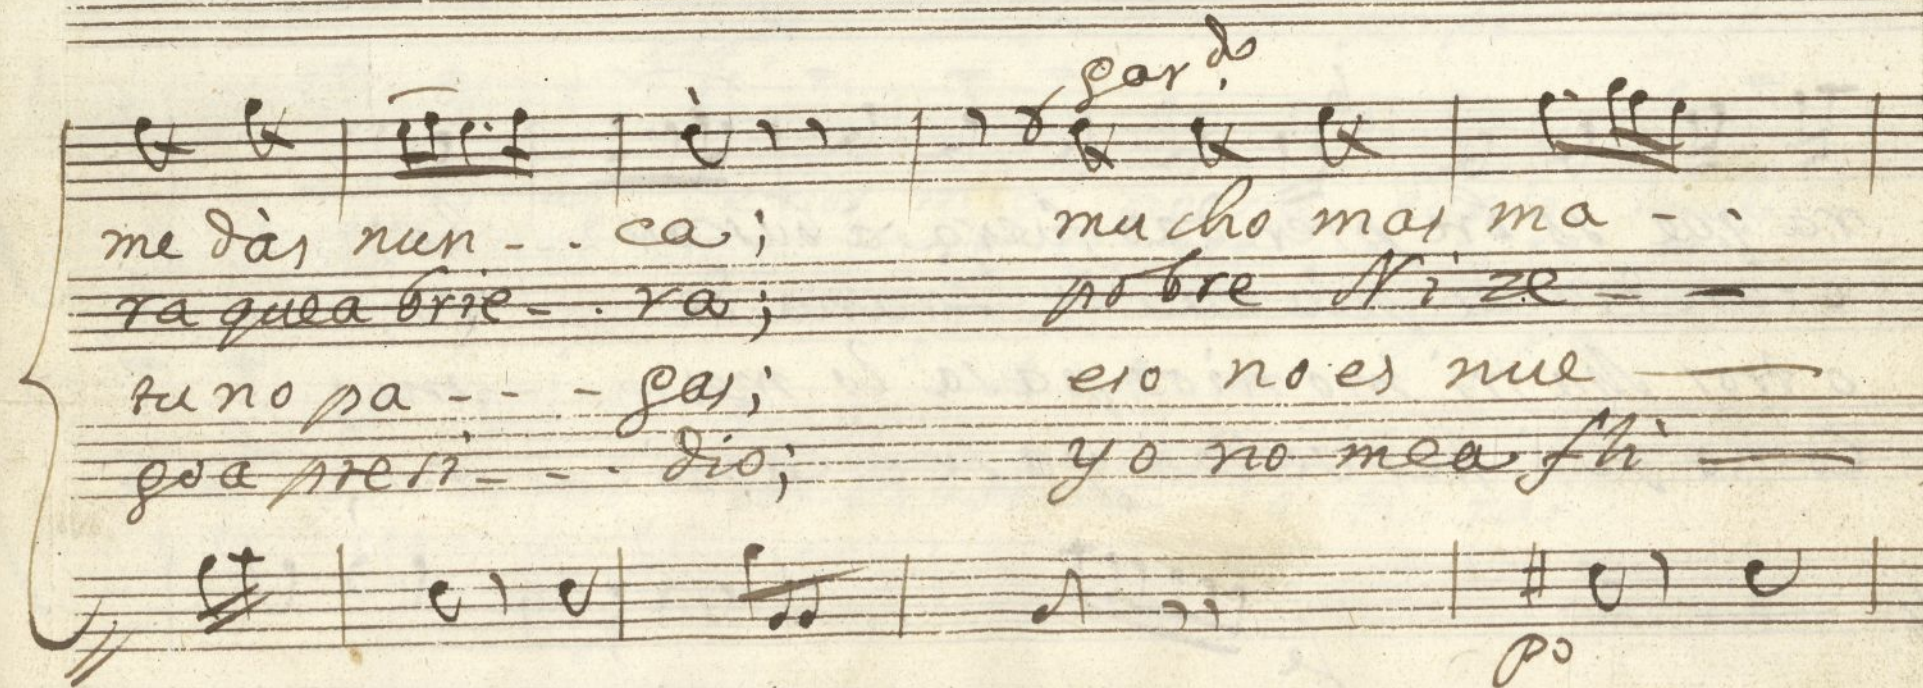 gar.do
me dàs nun - - . ca; mucho mas ma - - .
ra quea brie - . ra; pobre Ni ze - -
tu no pa - - - gas; eso no es nue -
goa presi - - . dio; yo no mea fli -
po